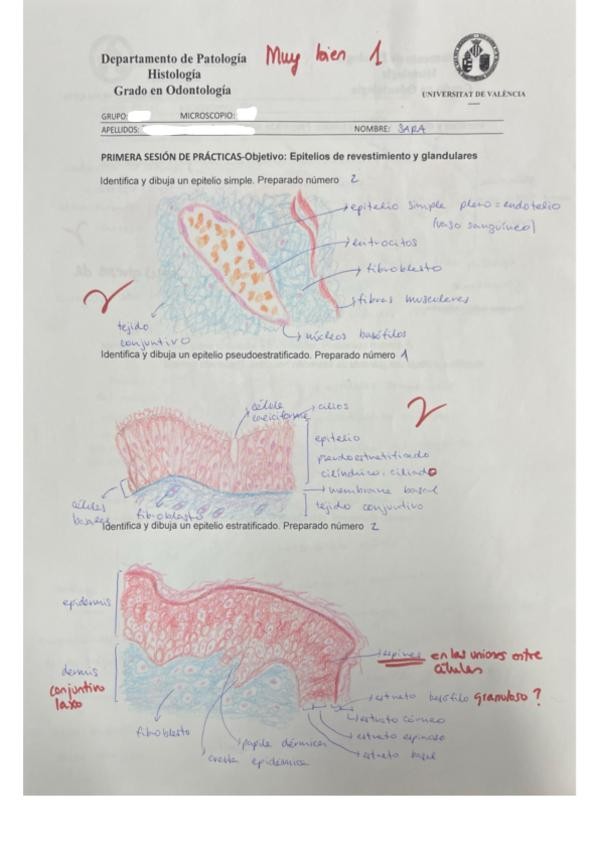 Departamento de Patología
Histología
Grado en Odontología
Muy bien 1
UNIVERSITAT DE VALÈNCIA
GRUPO: MICROSCOPIO:
APELLIDOS: NOMBRE: SARA
PRIMERA SESIÓN DE PRÁCTICAS-Objetivo: Epitelios de revestimiento y glandulares
Identifica y dibuja un epitelio simple. Preparado número 2
epitelio simple plano = endotelio
(vaso sanguíneo)
eritrocitos
fibroblasto
fibras musculares
núcleos basófilos
tejido
conjuntivo
Identifica y dibuja un epitelio pseudoestratificado. Preparado número 1
célula
caliciforme
cilios
epitelio
pseudoestratificado
cilíndrico ciliado
membrana basal
tejido conjuntivo
células
basales
fibroblastos
Identifica y dibuja un epitelio estratificado. Preparado número 2
epidermis
dermis
conjuntivo
laxo
espinas en las uniones entre
células
estrato basófilo Granuloso?
estrato córneo
estrato espinoso
estrato basal
fibroblasto
papila dérmica
cresta epidérmica